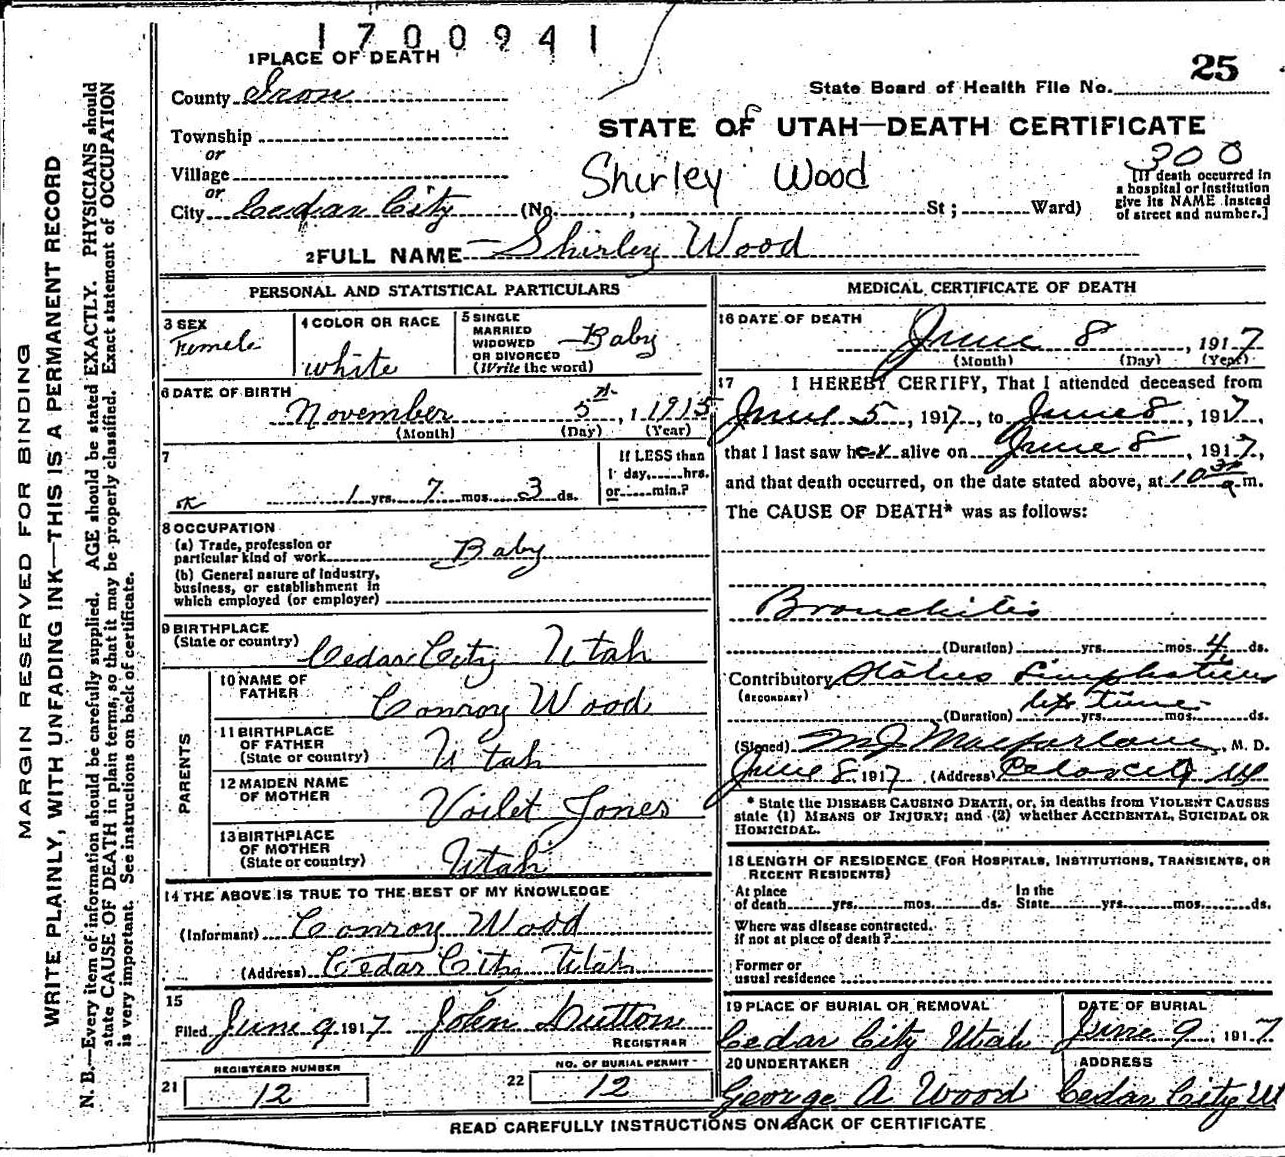 1700941
1 PLACE OF DEATH
25
County Iron
State Board of Health File No.
Township
STATE OF UTAH—DEATH CERTIFICATE
or
Village
Shirley Wood
300
or
City Cedar City (No. , St; Ward)
[If death occurred in
a hospital or institution
give its NAME instead
of street and number.]
2 FULL NAME Shirley Wood
PERSONAL AND STATISTICAL PARTICULARS
3 SEX
Femele
4 COLOR OR RACE
white
5 SINGLE
MARRIED
WIDOWED
OR DIVORCED
(Write the word)
Baby
6 DATE OF BIRTH
November 5th, 1 1915
(Month) (Day) (Year)
7
If LESS than
1 day, hrs.
or min.?
1 yrs. 7 mos. 3 ds.
8 OCCUPATION
(a) Trade, profession or
particular kind of work Baby
(b) General nature of Industry,
business, or establishment in
which employed (or employer)
9 BIRTHPLACE
(State or country) Cedar City Utah
PARENTS
10 NAME OF
FATHER
Conroy Wood
11 BIRTHPLACE
OF FATHER
(State or country) Utah
12 MAIDEN NAME
OF MOTHER Voilet Jones
13 BIRTHPLACE
OF MOTHER
(State or country) Utah
14 THE ABOVE IS TRUE TO THE BEST OF MY KNOWLEDGE
(Informant) Conroy Wood
(Address) Cedar City Utah
15
Filed June 9 1917 John
REGISTRAR
21
REGISTERED NUMBER
12
22
NO. OF BURIAL PERMIT
12
MEDICAL CERTIFICATE OF DEATH
16 DATE OF DEATH
June 8, 1917
(Month) (Day) (Year)
17 I HEREBY CERTIFY, That I attended deceased from
June 5, 1917, to June 8, 1917,
that I last saw her alive on June 8, 1917,
and that death occurred, on the date stated above, at 10 30 a m.
The CAUSE OF DEATH* was as follows:
Bronchitis
(Duration) yrs. mos. 4 ds.
Contributory Status Limphaticus
(SECONDARY)
life time
(Duration) yrs. mos. ds.
(Signed) M J Macfarlane, M. D.
June 8 1917 (Address)
* State the DISEASE CAUSING DEATH, or, in deaths from VIOLENT CAUSES
state (1) MEANS OF INJURY; and (2) whether ACCIDENTAL, SUICIDAL OR
HOMICIDAL.
18 LENGTH OF RESIDENCE (FOR HOSPITALS, INSTITUTIONS, TRANSIENTS, OR
RECENT RESIDENTS)
At place
of death yrs. mos. ds.
In the
State yrs. mos. ds.
Where was disease contracted,
if not at place of death?
Former or
usual residence
19 PLACE OF BURIAL OR REMOVAL
Cedar City Utah
DATE OF BURIAL
June 9, 1917
20 UNDERTAKER
George A Wood
ADDRESS
Cedar City Ut
READ CAREFULLY INSTRUCTIONS ON BACK OF CERTIFICATE
MARGIN RESERVED FOR BINDING
WRITE PLAINLY, WITH UNFADING INK—THIS IS A PERMANENT RECORD
N. B.—Every item of information should be carefully supplied. AGE should be stated EXACTLY. PHYSICIANS should
state CAUSE OF DEATH in plain terms, so that it may be properly classified. Exact statement of OCCUPATION
is very important. See instructions on back of certificate.